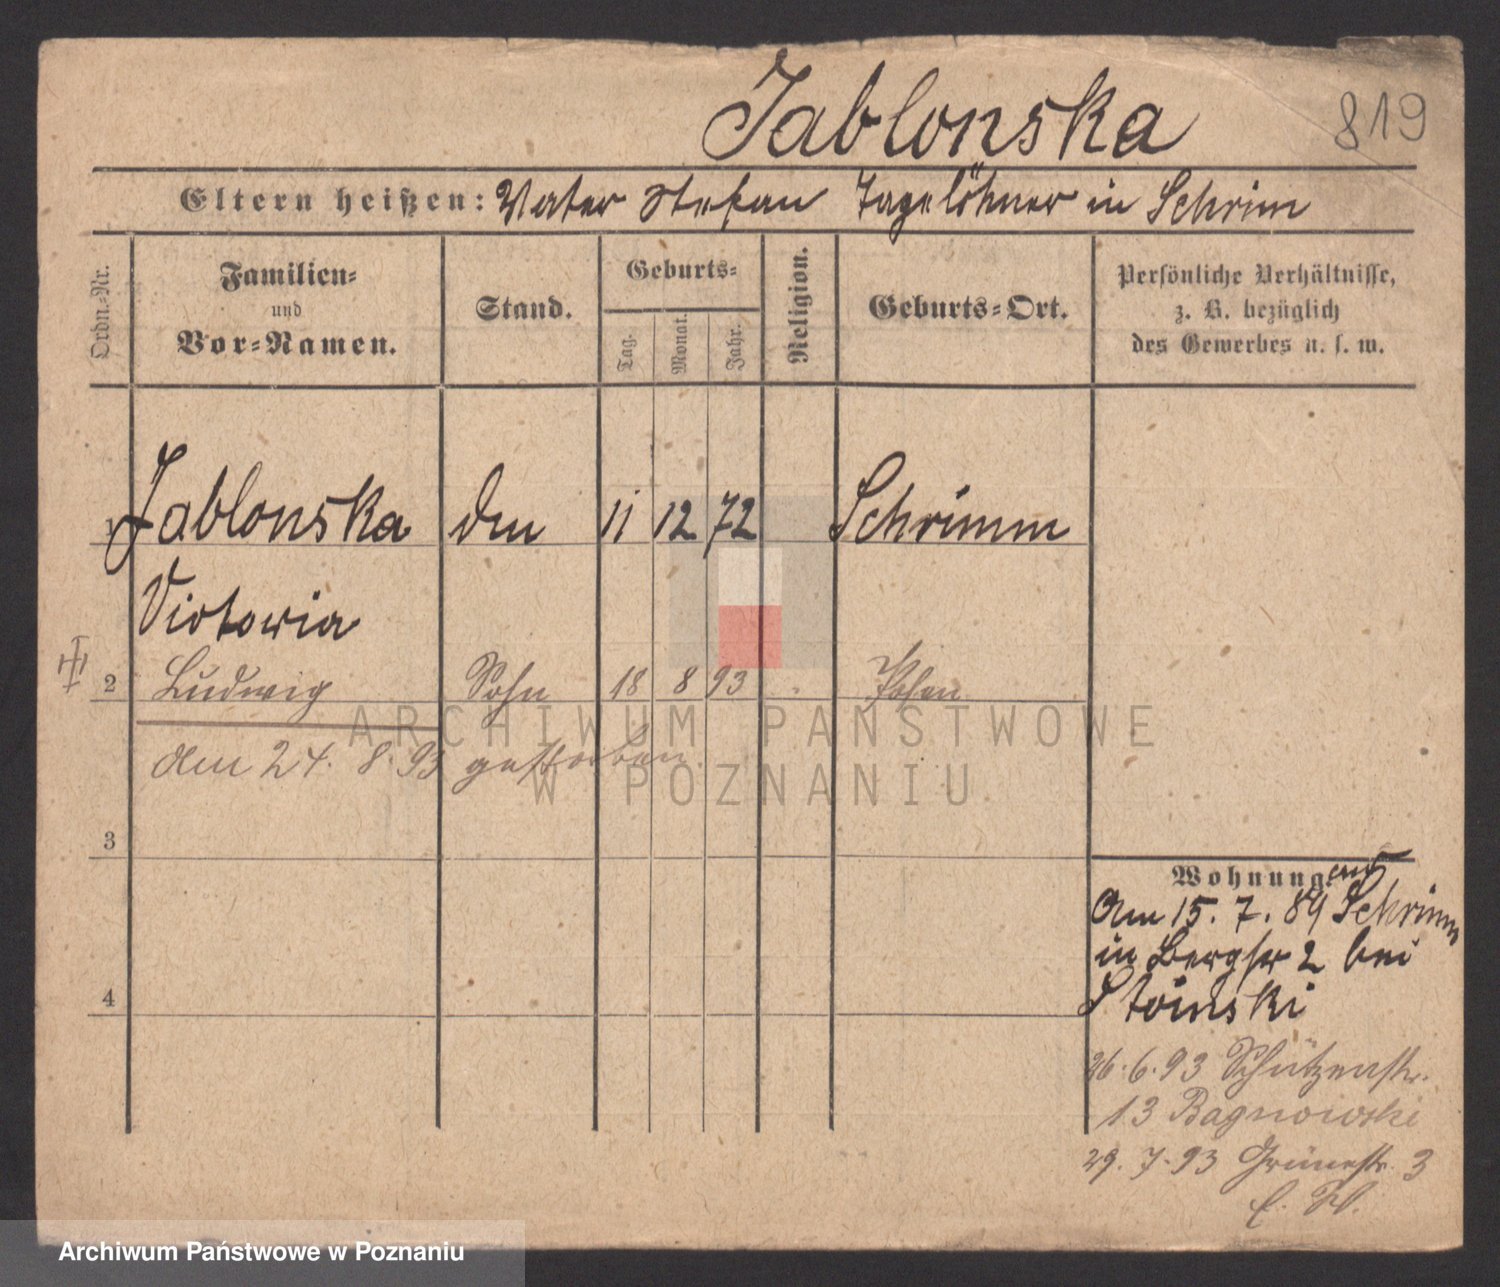 Jablonska
819
Eltern heißen: Vater Stefan Tagelöhner in Schrim
Ordn.-Nr.
Familien-
und
Vor-Namen.
Stand.
Geburts-
Tag.
Monat.
Jahr.
Religion.
Geburts-Ort.
Persönliche Verhältnisse,
z. B. bezüglich
des Gewerbes u. s. w.
1 Jablonska den 11 12 72 Schrimm
Victoria
2 Ludwig Sohn 18 8 93 Posen
am 24. 8. 93 gestorben.
3
4
Wohnung. aus
Am 15. 7. 89 Schrimm
in Bergstr 2 bei
Stoinski
26. 6. 93 Schützenstr.
13 Bagnowski
29. 7. 93 Grünestr. 3
ARCHIWUM PAŃSTWOWE
W POZNANIU
Archiwum Państwowe w Poznaniu